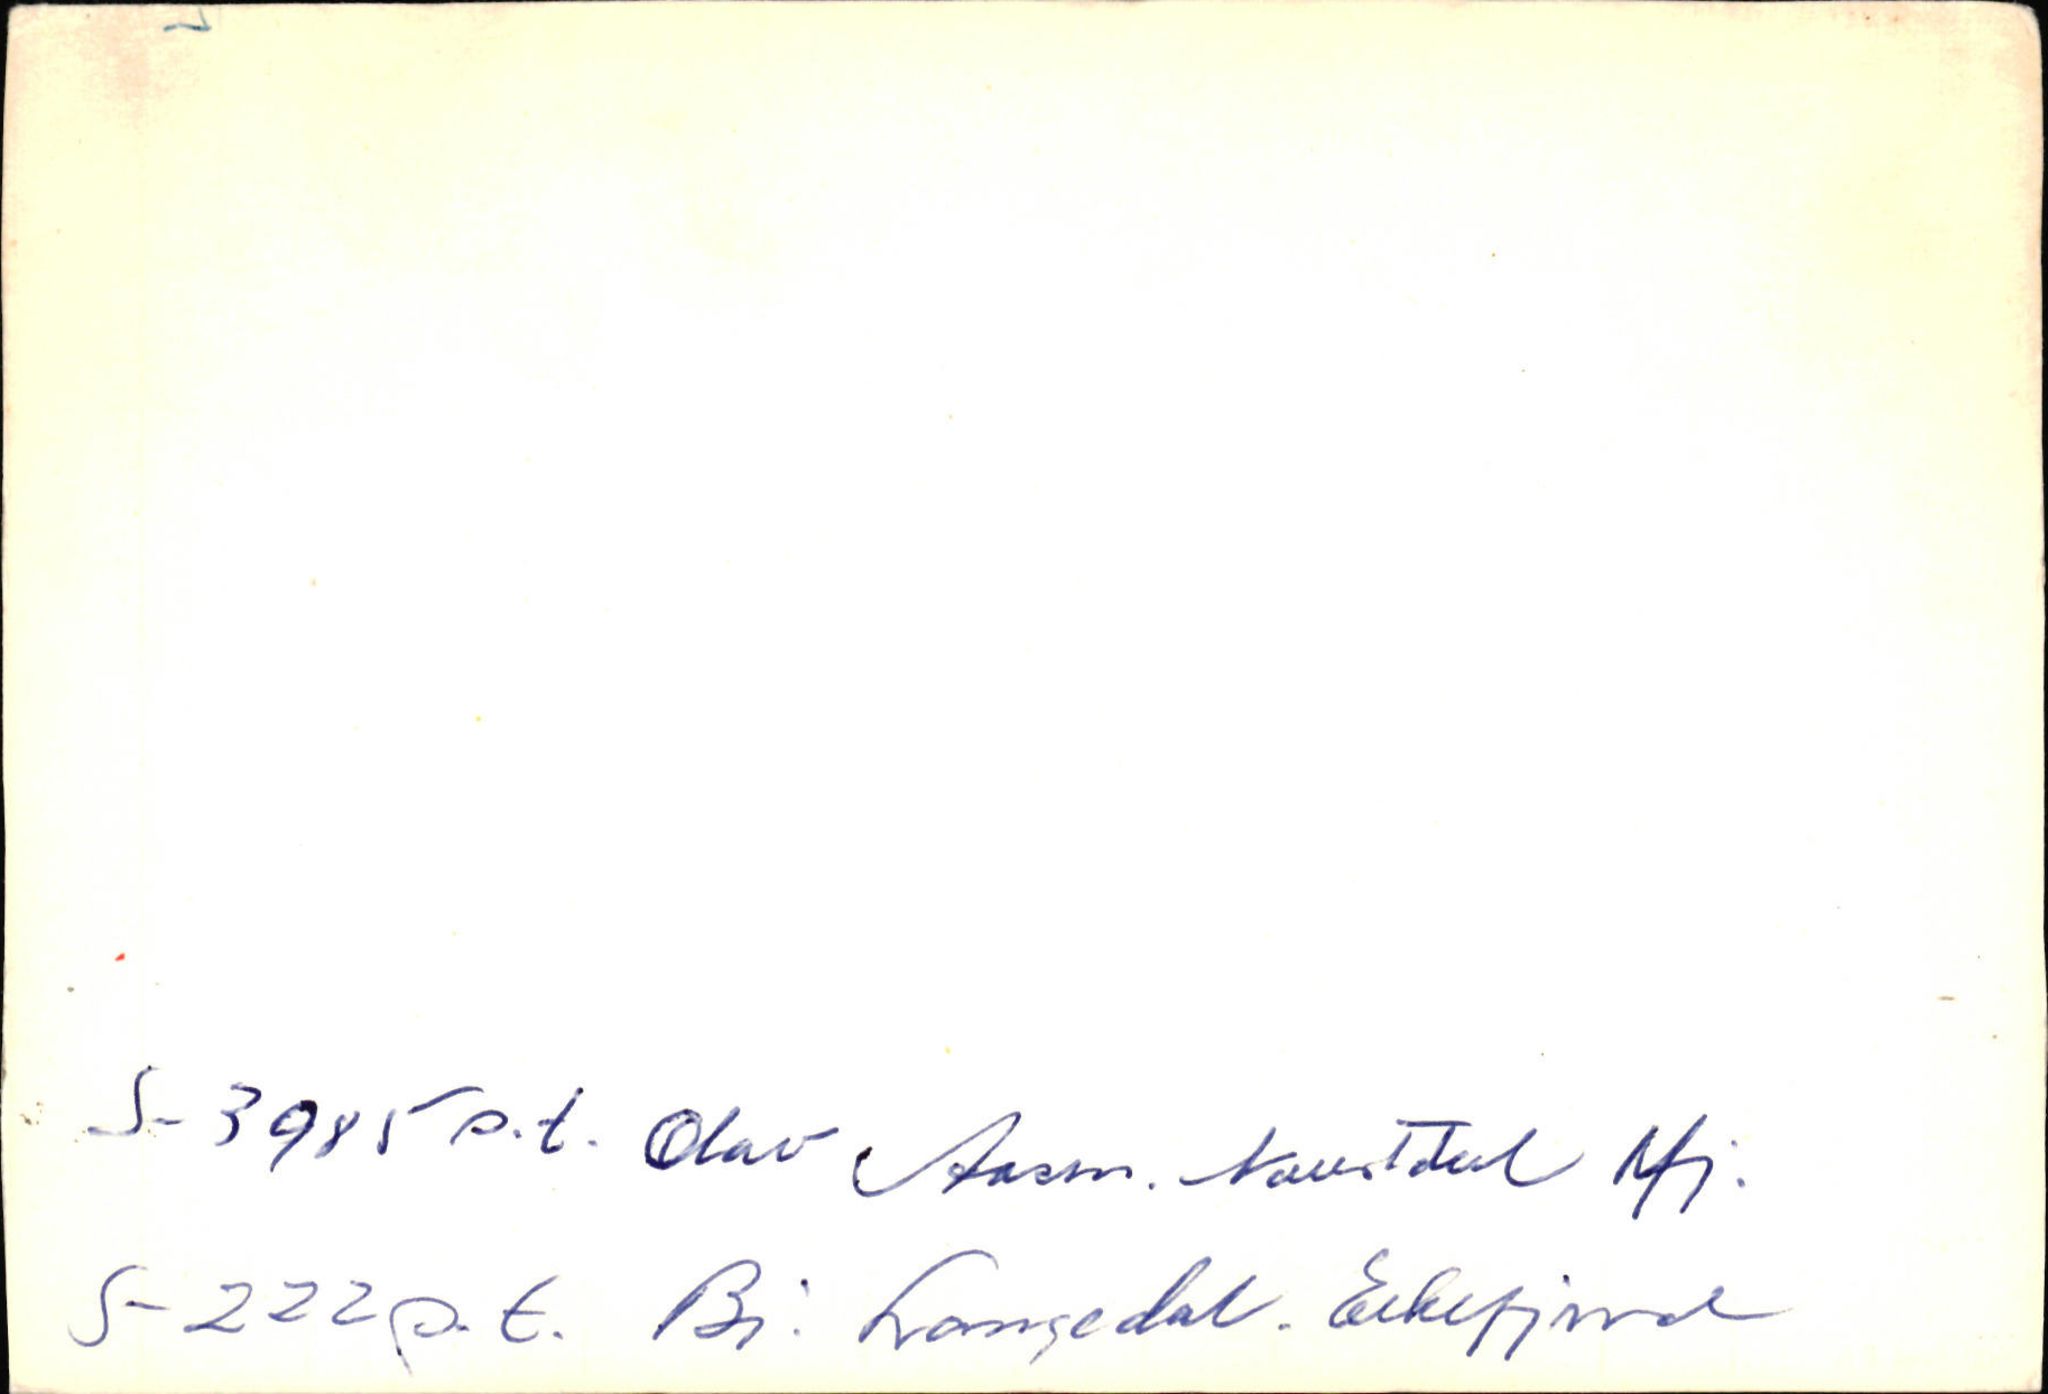 S-3985 p.t. Olav Aasen. Naustdal Nfj.
S-222 p.t. Bj. Langedal. Eikefjord